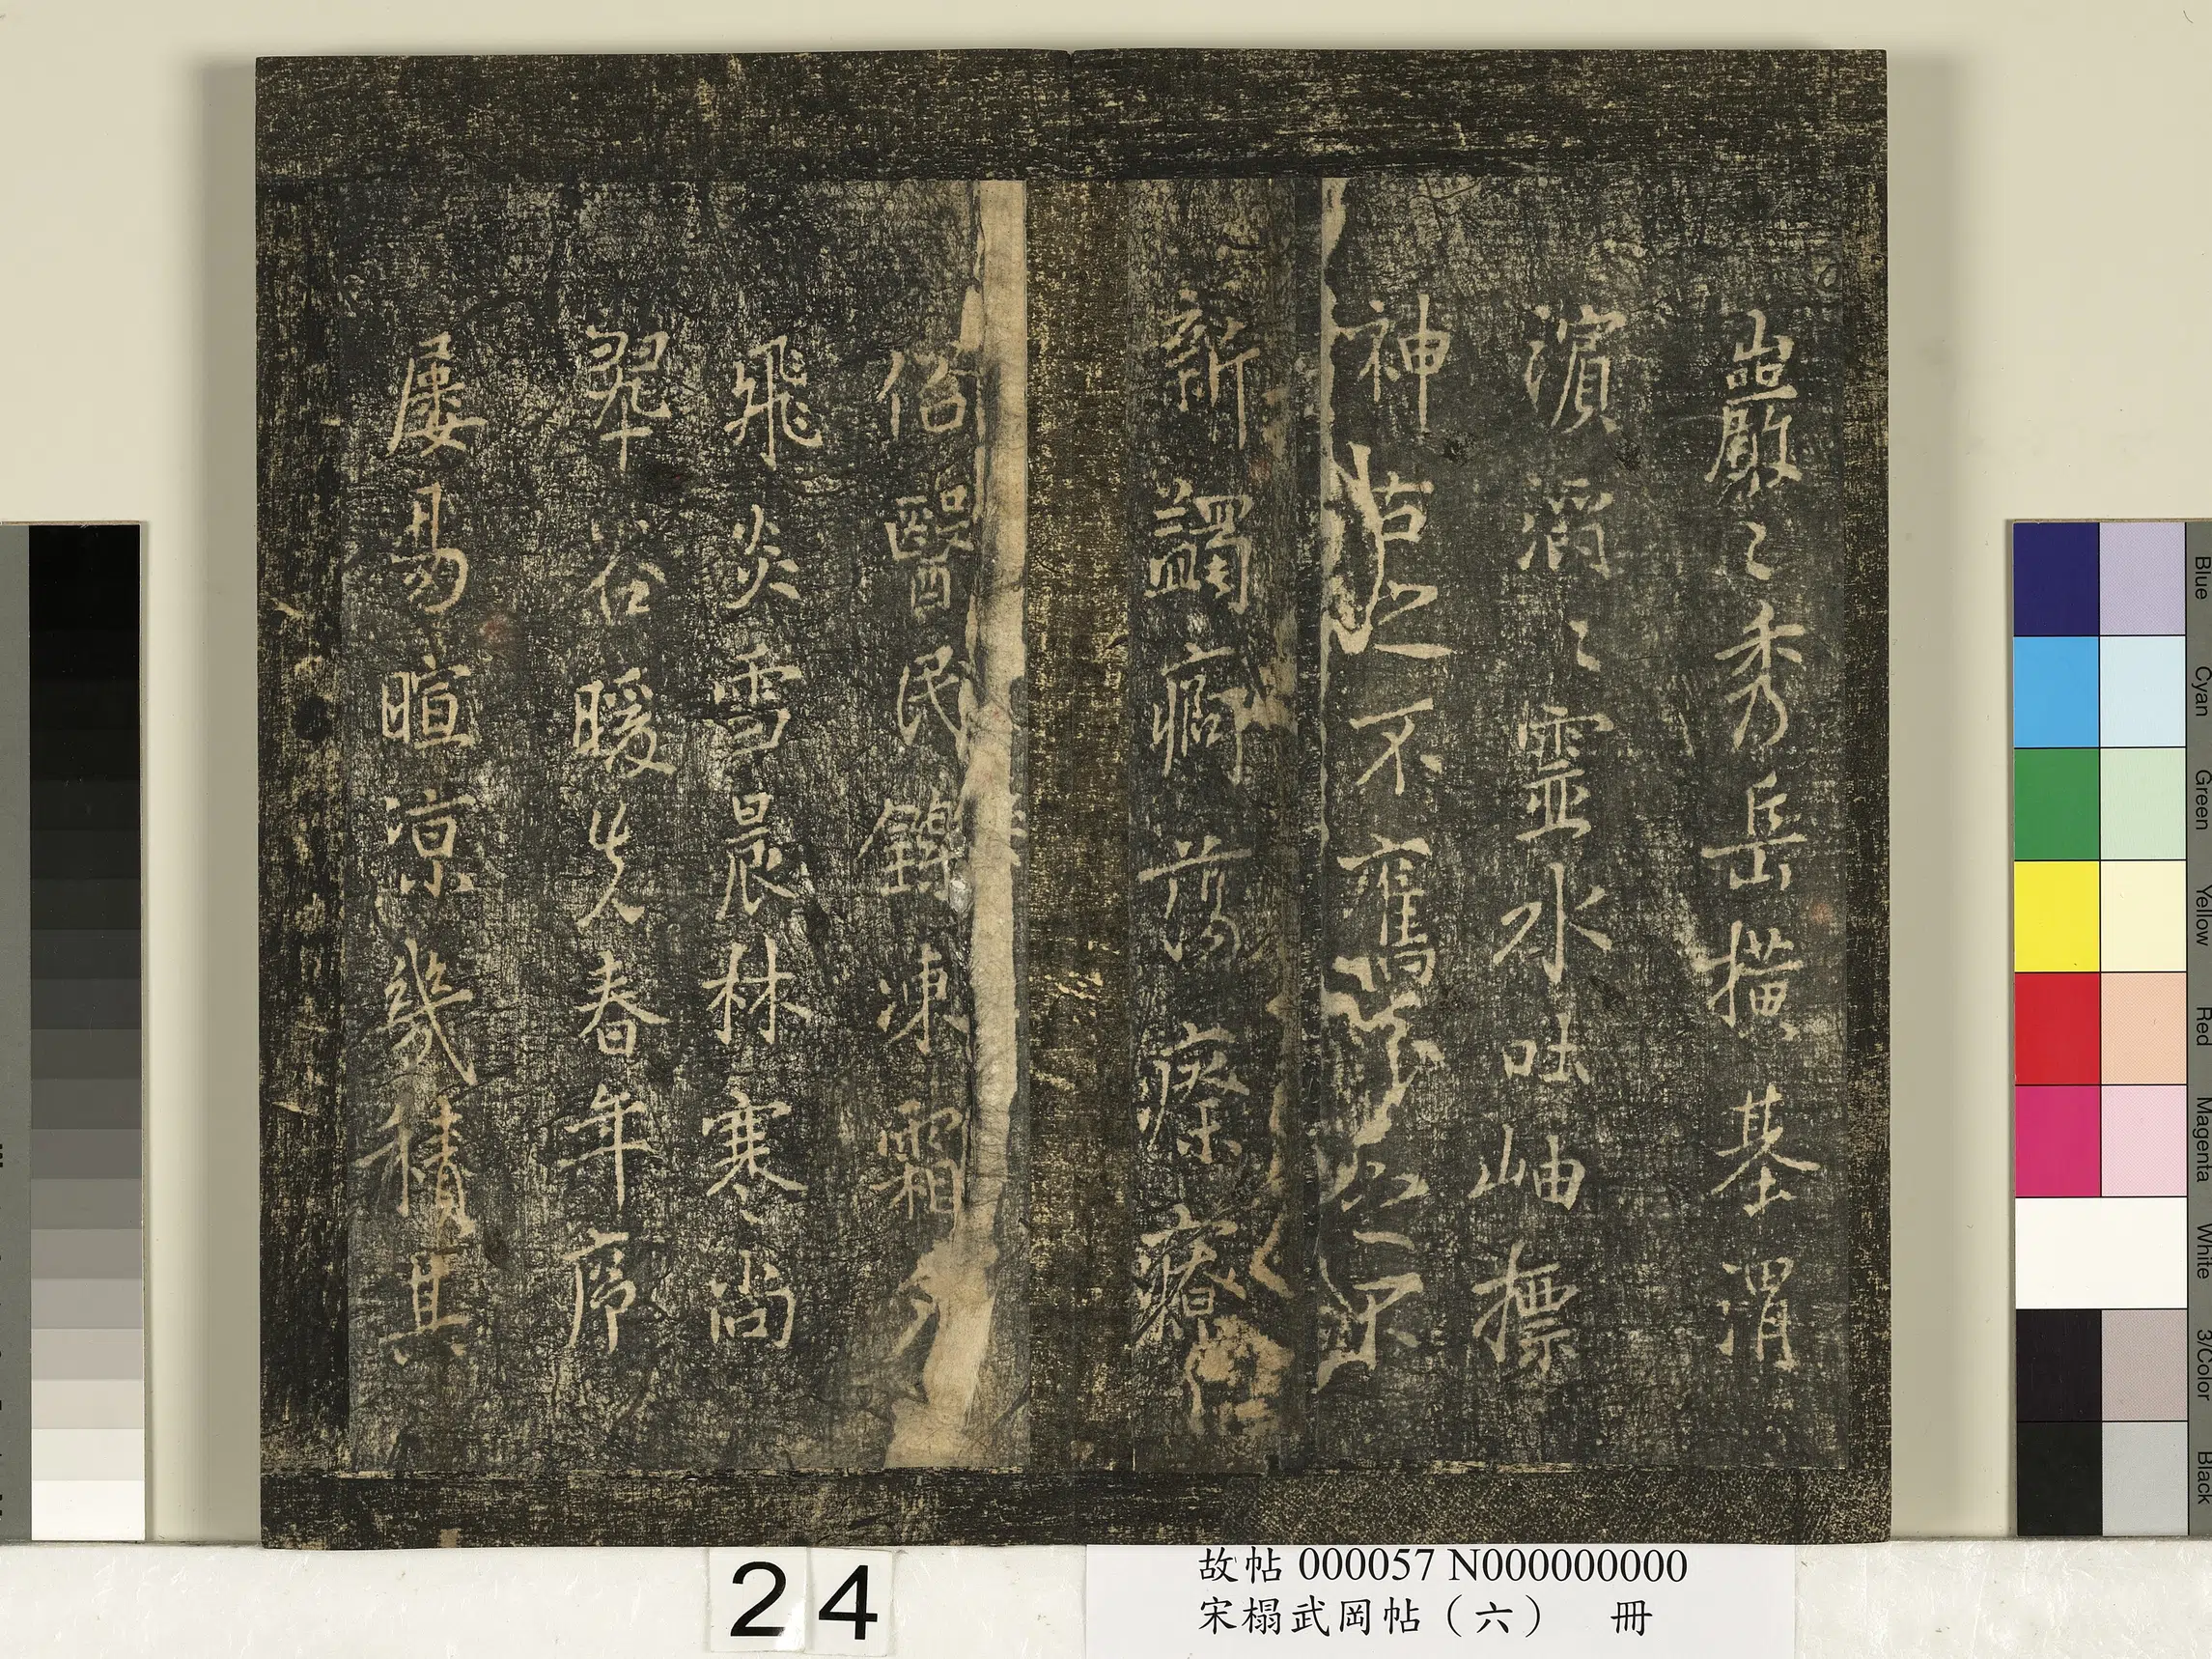 巖〻秀岳橫基渭
濱滔〻靈水吐岫標
神古之不舊今之不
新蠲痾蕩瘵療
俗醫民鑠凍霜夕
飛炎雪晨林寒尚
翠谷暖先春年序
屢易暄涼幾積其
24
故帖 000057 N000000000
宋榻武岡帖（六） 冊
Blue
Cyan
Green
Yellow
Red
Magenta
White
3/Color
Black